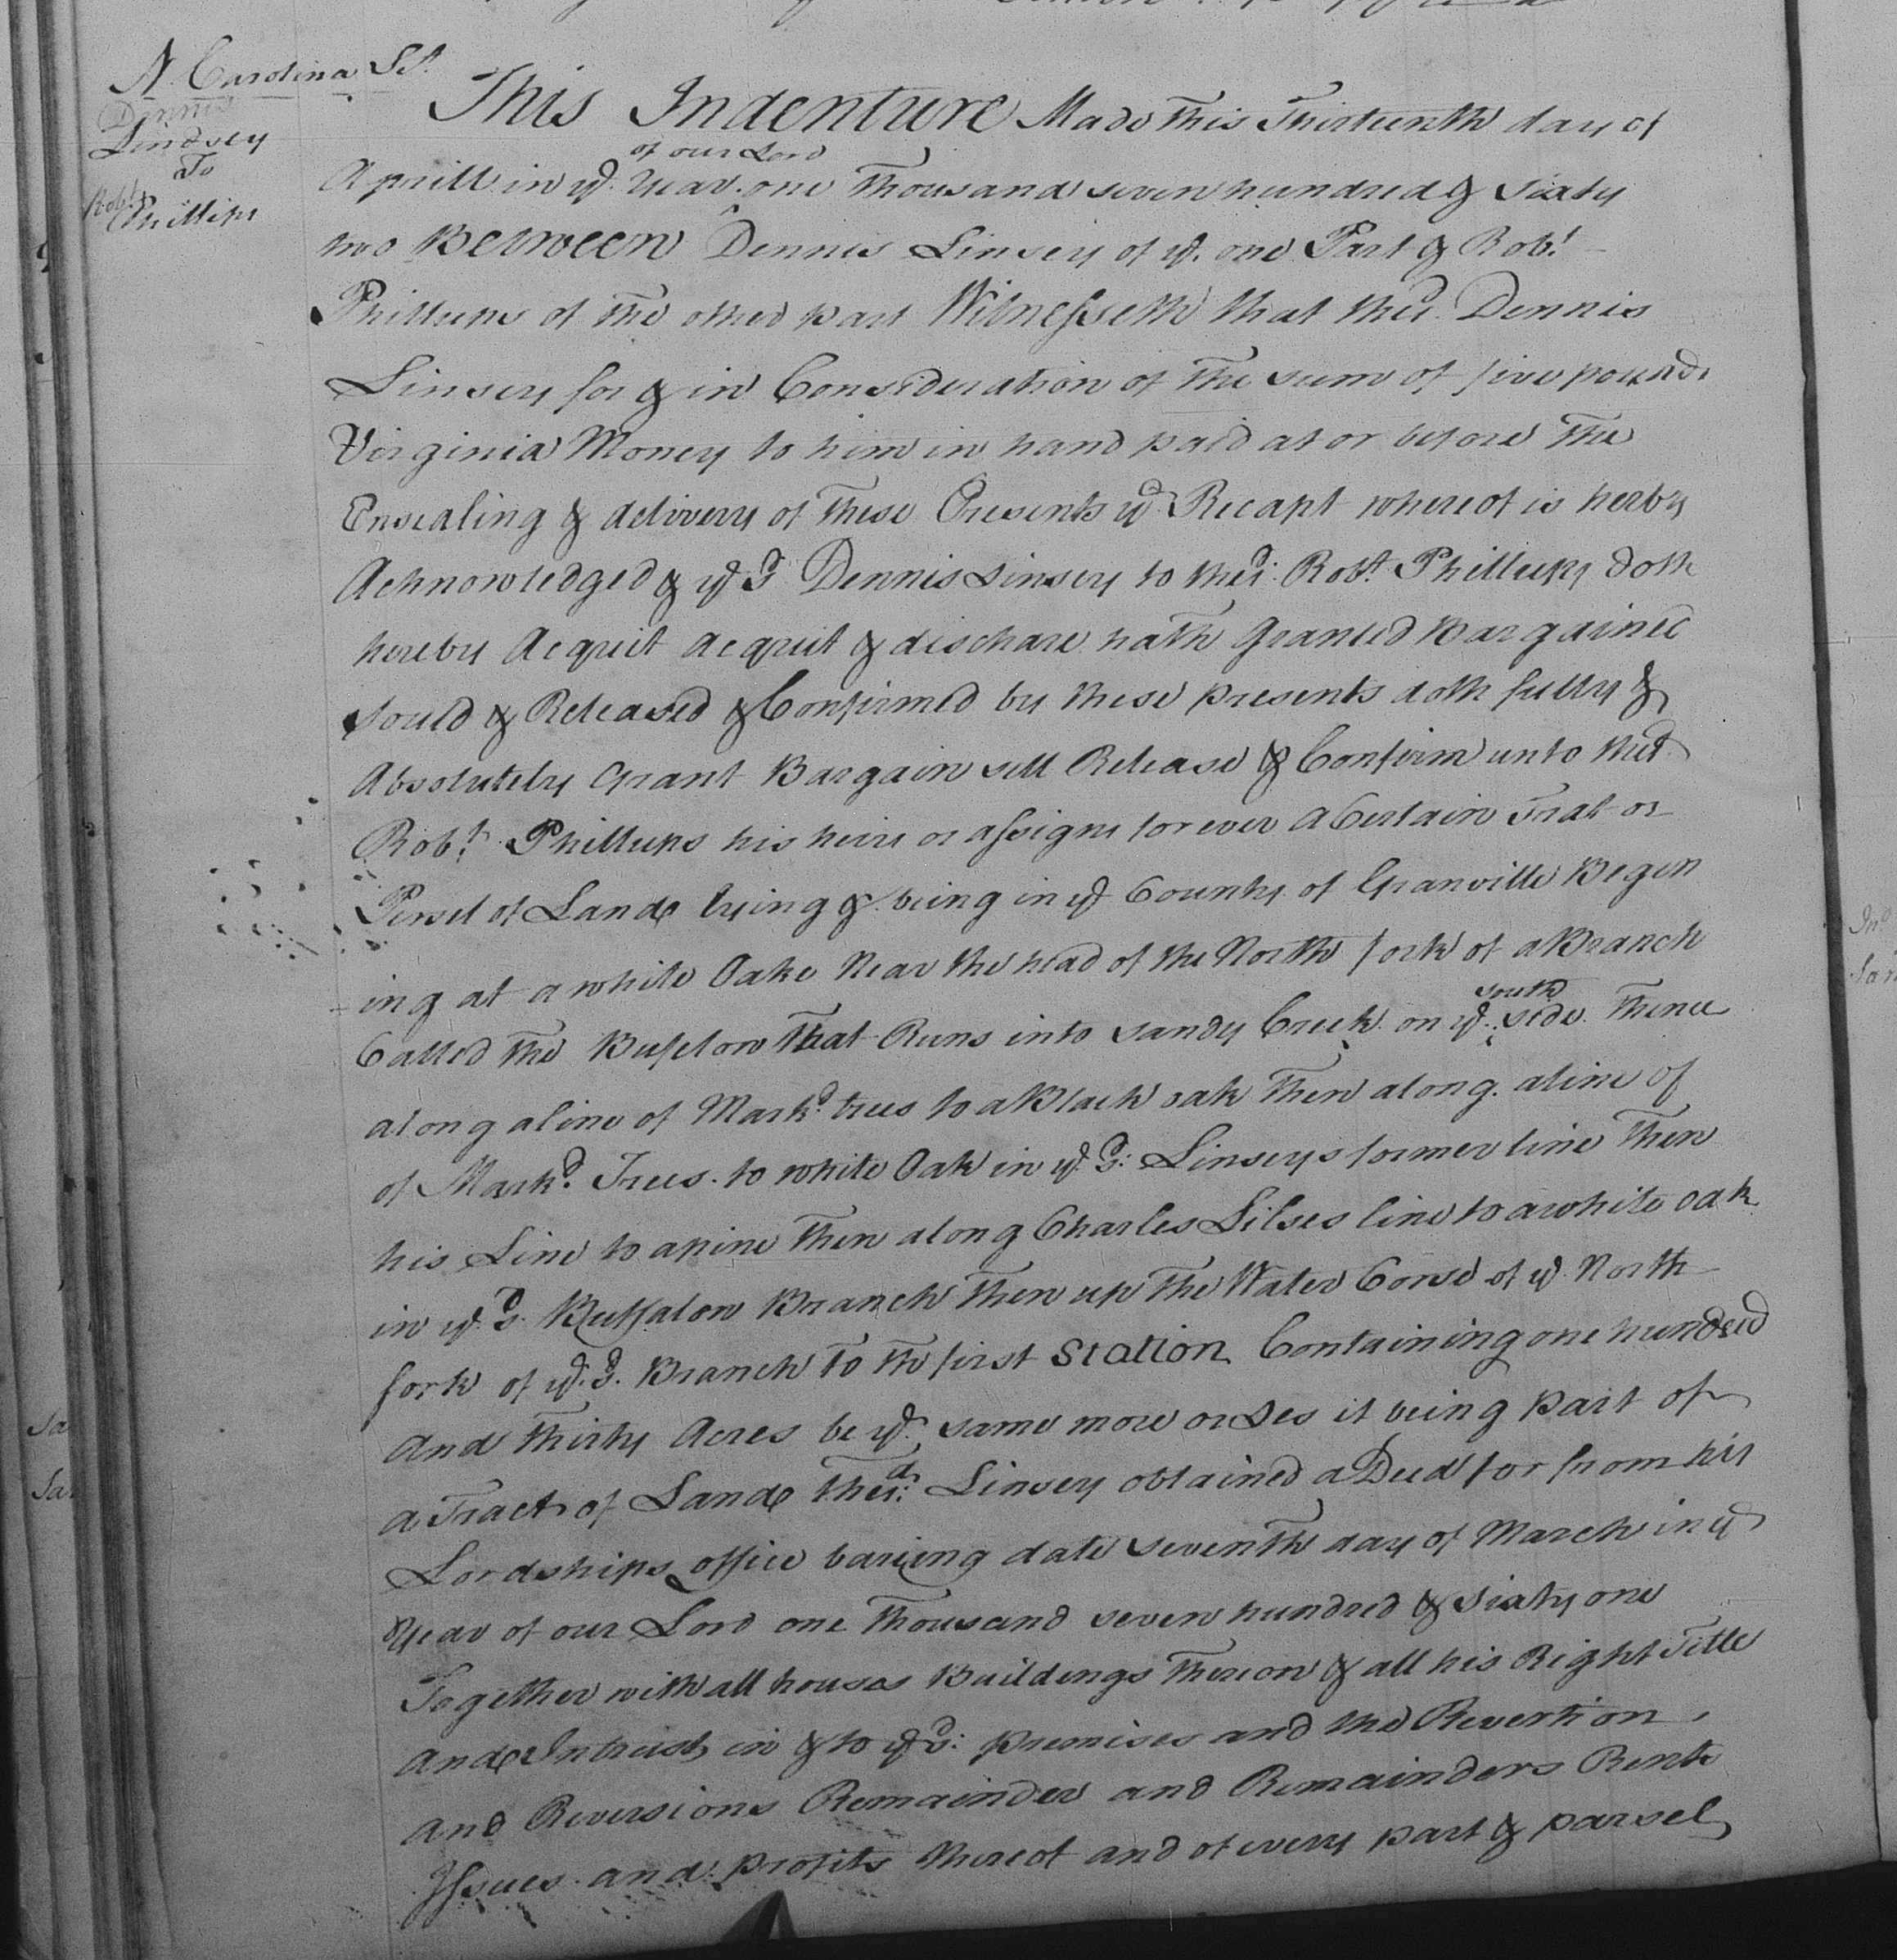 N. Carolina Sct.
Dennis
Lindsey
To
Robt.
Phillips
This Indenture Made This Thirteenth day of
of our Lord
Aprill in ye. Year one Thousand seven hundred & Sixty
two Between Dennis Linsey of ye. one Part & Robt.
Phillups of The other part Witnesseth that the sd. Dennis
Linsey for & in Consideration of The sum of five pounds
Virginia Money to him in hand paid at or before The
Ensealing & delivery of These Presents ye Recapt whereof is herby
Acknowledged & ye sd Dennis Linsey to the sd. Robt. Phillups doth
hereby Acquit acquit & dischare hath Granted Bargained
sould & Released & Confirmed by these presents doth fully &
Absolutely Grant Bargain sell Release & Confirm unto the sd
Robt. Phillups his heirs or assigns for ever a Certain Trat or
Persel of Land lying & being in ye County of Granville Begin
ing at a white Oake Near the head of the North fork of a Branch
south
Called The Buflow That Runs into Sandy Creek on ye. side Thence
along a line of Markd. trees to a Black oak Then along a line of
of Markd. Trees to white Oak in ye. sd. Linseys former line Then
his Line to a pine Then along Charles Lilses line to a white oak
in ye. sd. Buffalow Branch Then up The Water Corse of ye North
fork of ye. sd. Branch To The first Station Containing one hundred
And Thirty Acres be ye. same more or Les it being part of
a Tract of Land The sd. Linsey obtained a Deed for from his
Lordships office baring date seventh day of March in ye
Year of our Lord one Thousand seven hundred & sixty one
Together with all houses Buildings Thereon & all his Right Title
and Intrust in & to ye sd. premises and the Revertion
and Reversions Remainder and Remainders Rents
Issues and profits thereof and of every part & parsel